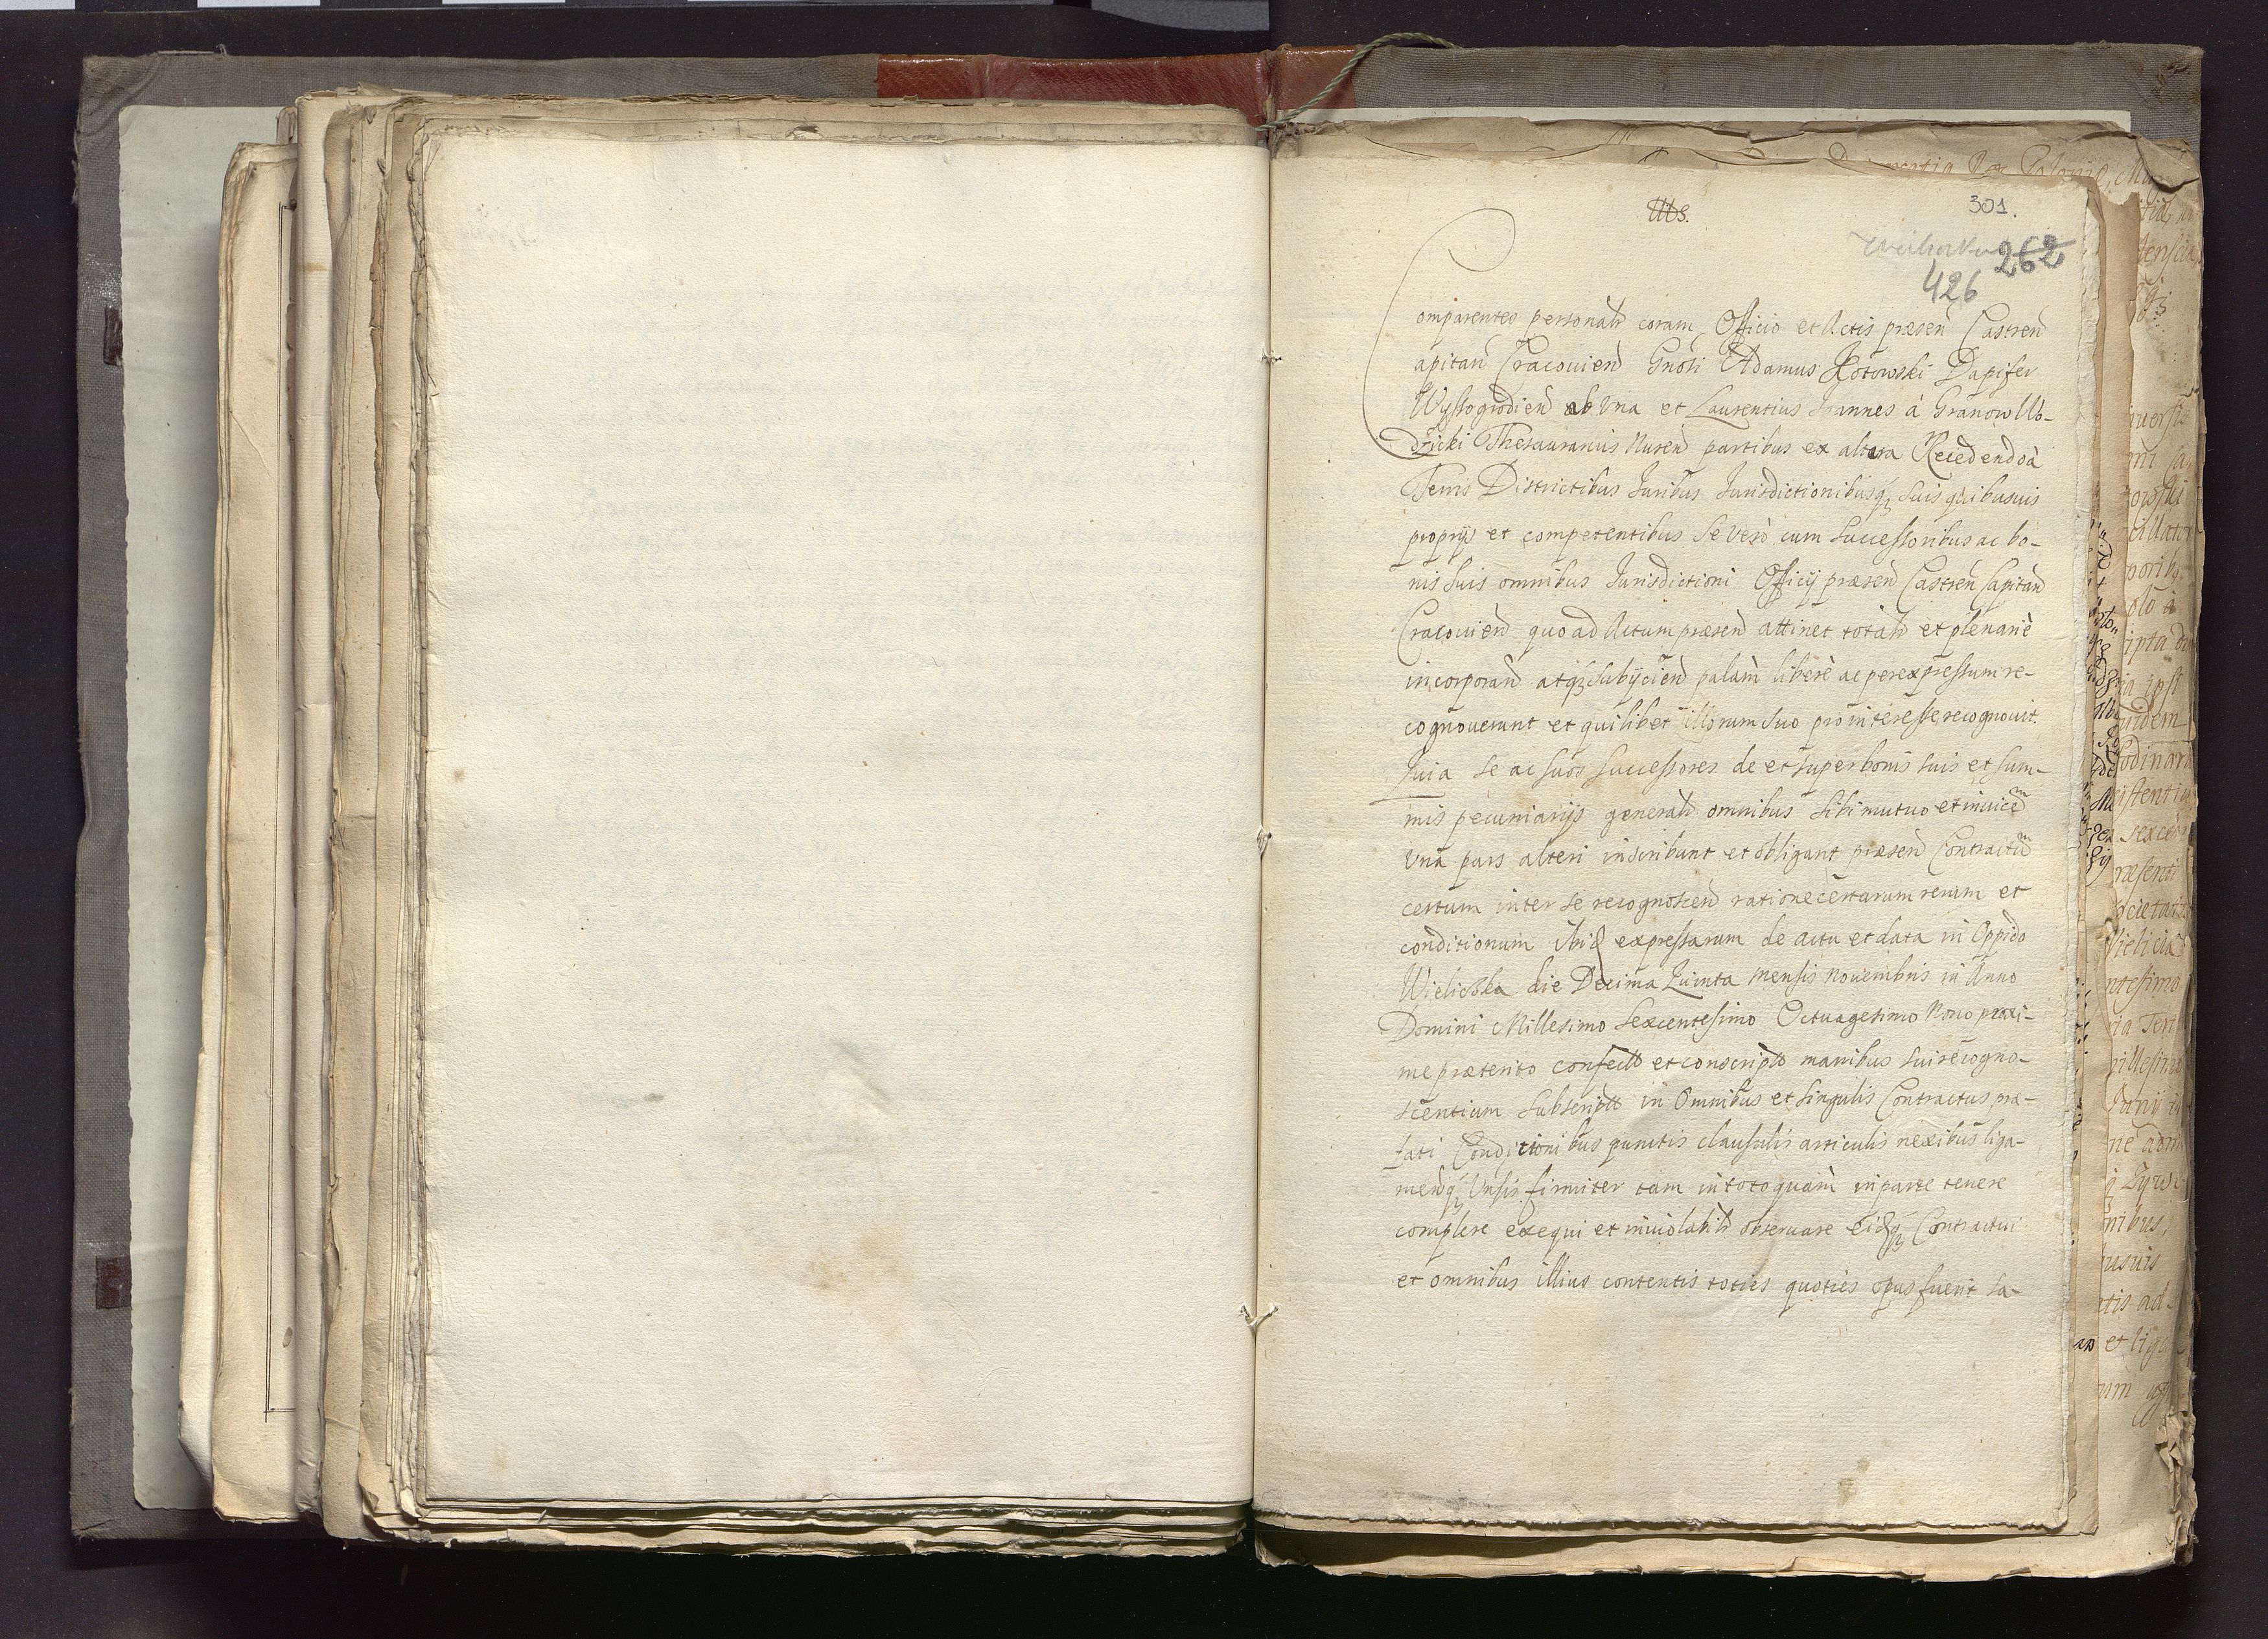 301.
262
426
Comparentes personalr coram Officio et Actis præsen Castren
apitan Cracouien Gnosi Adamus Kotowski Dapifer
Wyssogrodien ab Vna et Laurentius Joannes à Granow Wo-
dzicki Thesaurarius Nuren partibus ex altera Recedendo à
Terris Districtibus Juribus Jurisdictionibusq; suis quibusuis
proprijs et competentibus se verò cum successoribus ac bo-
nis suis omnibus Jurisdictioni Officij præsen Castren Capitan
Cracouien quo ad Actum præsen attinet totalr et plenariè
incorporan atq; subijcien palàm liberè ac per expressum re-
cognouerunt et quilibet illorum suo pro interesse recognouit.
Quia se ac suos successores de et super bonis suis et sum-
mis pecuniarijs generalr omnibus sibi mutuo et inuicem
vna pars alteri inscribunt et obligant præsen Contractum
certum inter se recognoscen ratione certarum rerum et
conditionum ibid expressarum de actu et data in Oppido
Wieliczka die Decima Quinta mensis Nouembris in Anno
Domini Millesimo Sexcentesimo Octuagesimo Nono proxi-
me præterito confecto et conscripto manibus sui recogno-
scentium subscripto in Omnibus et singulis Contractus præ-
fati Conditionibus punctis clausulis articulis nexibus liga-
menq; Vnsis firmiter tam in toto quàm in parte tenere
complere exequi et inuiolabilr obseruare eidq; Contractui
et omnibus illius contentis toties quoties opus fuerit sa-